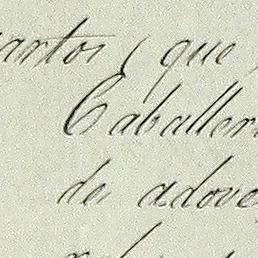 antos, que
Caballer
de adove